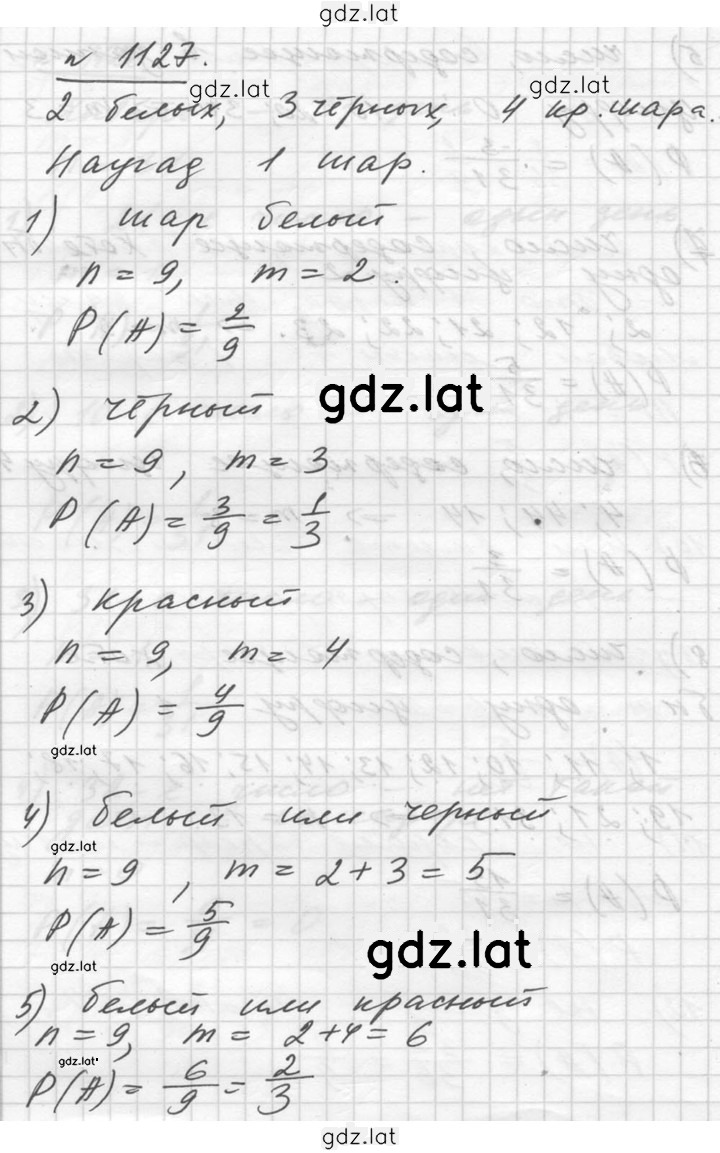 gdz.lat
n 1127.
gdz.lat
gdz.lat
2 белых, 3 чёрных, 4 кр. шара.
Наугад 1 шар.
1) шар белый
n = 9, m = 2.
P(A) = 2/9
gdz.lat
2) чёрный
n = 9, m = 3
P(A) = 3/9 = 1/3.
3) красный
n = 9, m = 4
P(A) = 4/9
gdz.lat
4) белый или черный
gdz.lat
n = 9, m = 2 + 3 = 5
P(A) = 5/9
gdz.lat
gdz.lat
5) белый или красный
n = 9, m = 2+4 = 6
gdz.lat
P(A) = 6/9 = 2/3
gdz.lat